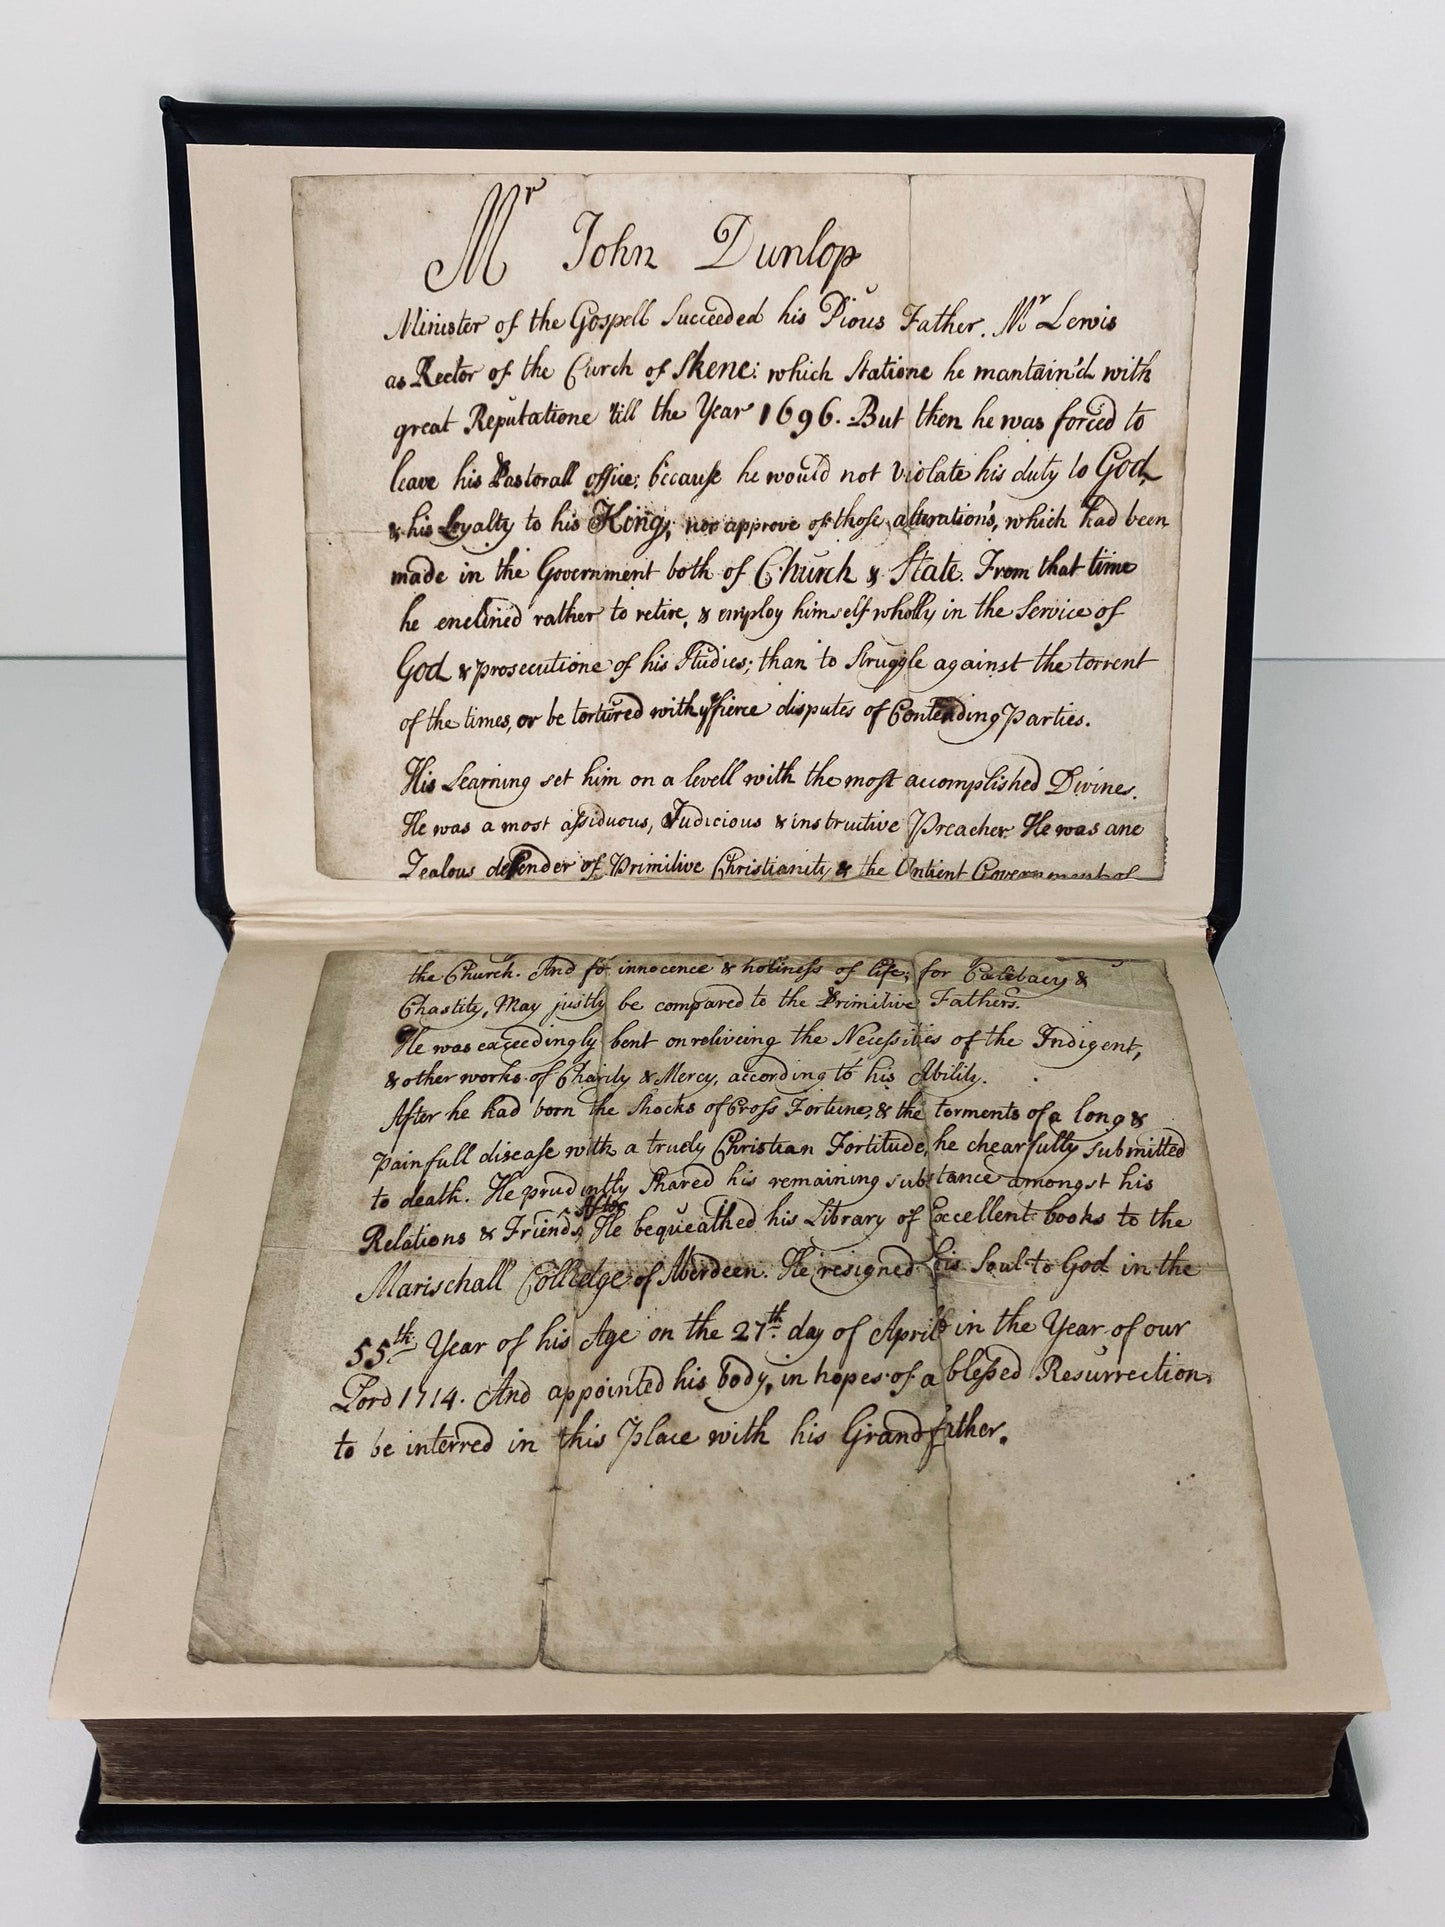 Mr John Dunlop
Minister of the Gospell Succeeded his Pious Father. Mr Lewis
as Rector of the Curch of Skene: which Statione he mantain'd with
great Reputatione 'till the Year 1696. But then he was forced to
leave his Pastorall office: because he would not violate his duty to God,
& his Loyalty to his King; nor approve of those alterations, which had been
made in the Government both of Church & State. From that time
he enclined rather to retire, & employ himself wholly in the Service of
God & prosecutione of his Studies; than to struggle against the torrent
of the times, or be tortured with ye fierce disputes of Contending Parties.
His Learning set him on a levell with the most accomplished Divines.
He was a most assiduous, Judicious & instructive Preacher. He was ane
Zealous defender of Primitive Christianity & the Antient Government of
the Church. And for innocence & holiness of life; for Celebacy &
Chastity, May justly be compared to the Primitive Fathers.
He was exceedingly bent on reliveing the Necessities of the Indigent,
& other works of Charity & Mercy, according to his Ability.
After he had born the Shocks of Cross Fortune, & the torments of a long &
painfull disease with a truely Christian Fortitude, he chearfully submitted
to death. He prudently Shared his remaining substance amongst his
Relations & Friends, He bequeathed his Library of Excellent books to the
Marischall Colledge of Aberdeen. He resigned his Soul to God in the
55th Year of his Age on the 27th day of April in the Year of our
Lord 1714. And appointed his body, in hopes of a blessed Resurrection,
to be interred in this Place with his Grandfather.